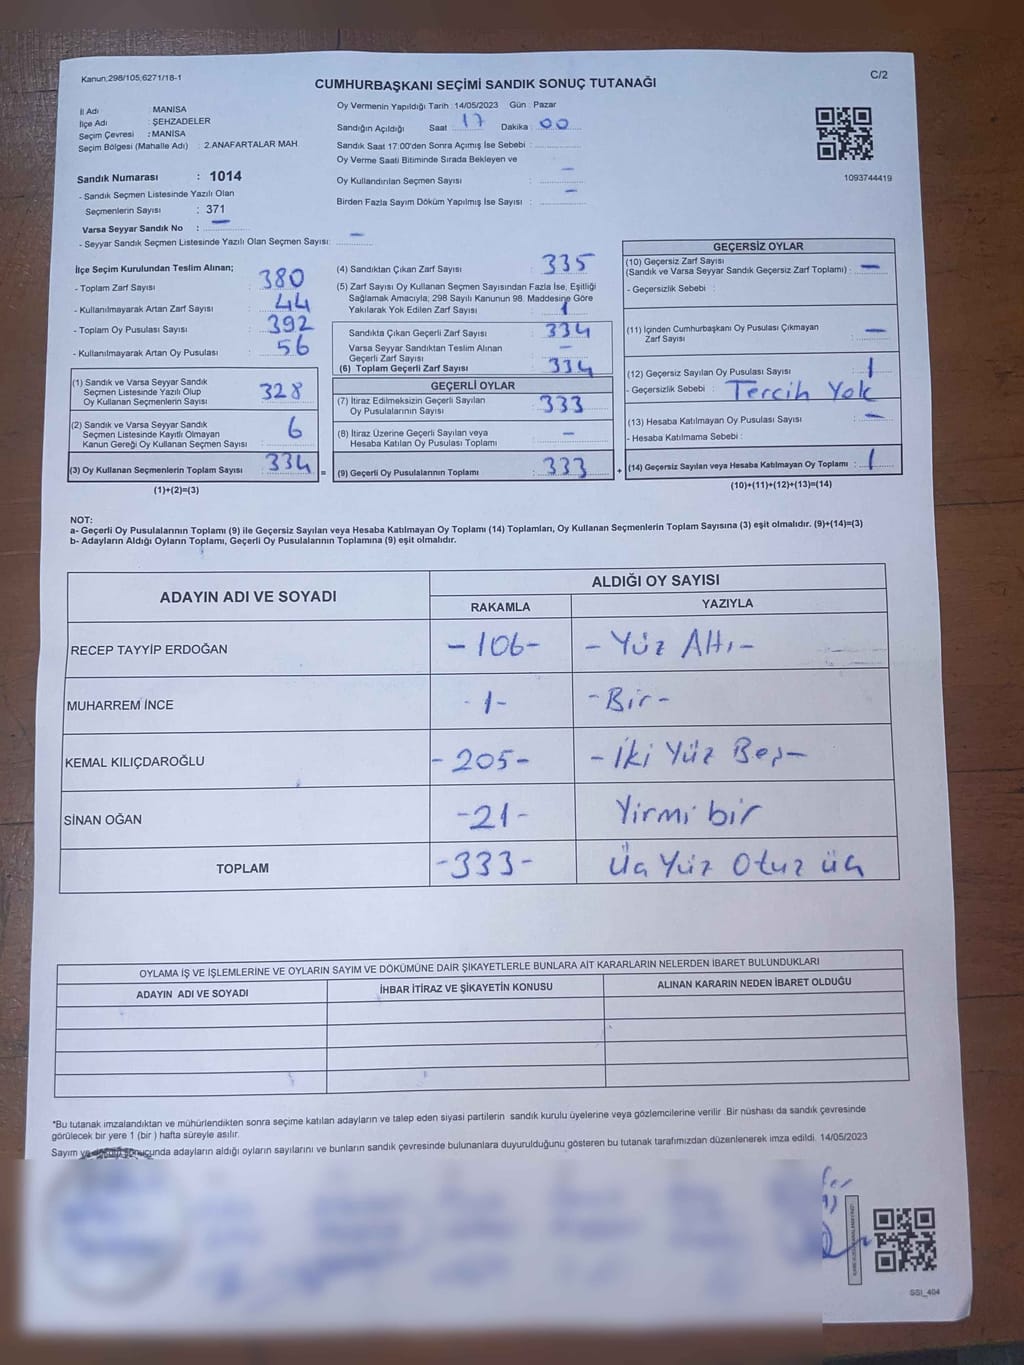 Kanun;298/105,6271/18-1
C/2
CUMHURBAŞKANI SEÇİMİ SANDIK SONUÇ TUTANAĞI
İl Adı : MANİSA
İlçe Adı : ŞEHZADELER
Seçim Çevresi : MANİSA
Seçim Bölgesi (Mahalle Adı) : 2.ANAFARTALAR MAH
Sandık Numarası : 1014
- Sandık Seçmen Listesinde Yazılı Olan
Seçmenlerin Sayısı : 371
Varsa Seyyar Sandık No : —
- Seyyar Sandık Seçmen Listesinde Yazılı Olan Seçmen Sayısı: —
Oy Vermenin Yapıldığı Tarih : 14/05/2023 Gün : Pazar
Sandığın Açıldığı Saat : 17 Dakika : 00
Sandık Saat 17:00'den Sonra Açımış İse Sebebi :
Oy Verme Saati Bitiminde Sırada Bekleyen ve
Oy Kullandırılan Seçmen Sayısı : —
Birden Fazla Sayım Döküm Yapılmış İse Sayısı : —
1093744419
İlçe Seçim Kurulundan Teslim Alınan;
- Toplam Zarf Sayısı : 380
- Kullanılmayarak Artan Zarf Sayısı : 44
- Toplam Oy Pusulası Sayısı : 392
- Kullanılmayarak Artan Oy Pusulası : 56
(1) Sandık ve Varsa Seyyar Sandık
Seçmen Listesinde Yazılı Olup
Oy Kullanan Seçmenlerin Sayısı : 328
(2) Sandık ve Varsa Seyyar Sandık
Seçmen Listesinde Kayıtlı Olmayan
Kanun Gereği Oy Kullanan Seçmen Sayısı : 6
(3) Oy Kullanan Seçmenlerin Toplam Sayısı : 334 =
(1)+(2)=(3)
(4) Sandıktan Çıkan Zarf Sayısı : 335
(5) Zarf Sayısı Oy Kullanan Seçmen Sayısından Fazla İse, Eşitliği
Sağlamak Amacıyla; 298 Sayılı Kanunun 98. Maddesine Göre
Yakılarak Yok Edilen Zarf Sayısı : 1
Sandıkta Çıkan Geçerli Zarf Sayısı : 334
Varsa Seyyar Sandıktan Teslim Alınan
Geçerli Zarf Sayısı : —
(6) Toplam Geçerli Zarf Sayısı : 334
GEÇERLİ OYLAR
(7) İtiraz Edilmeksizin Geçerli Sayılan
Oy Pusulalarının Sayısı : 333
(8) İtiraz Üzerine Geçerli Sayılan veya
Hesaba Katılan Oy Pusulası Toplamı : —
(9) Geçerli Oy Pusulalarının Toplamı : 333 +
GEÇERSİZ OYLAR
(10) Geçersiz Zarf Sayısı
(Sandık ve Varsa Seyyar Sandık Geçersiz Zarf Toplamı) : —
- Geçersizlik Sebebi :
(11) İçinden Cumhurbaşkanı Oy Pusulası Çıkmayan
Zarf Sayısı : —
(12) Geçersiz Sayılan Oy Pusulası Sayısı : 1
- Geçersizlik Sebebi : Tercih Yok
(13) Hesaba Katılmayan Oy Pusulası Sayısı : —
- Hesaba Katılmama Sebebi :
(14) Geçersiz Sayılan veya Hesaba Katılmayan Oy Toplamı : 1
(10)+(11)+(12)+(13)=(14)
NOT:
a- Geçerli Oy Pusulalarının Toplamı (9) ile Geçersiz Sayılan veya Hesaba Katılmayan Oy Toplamı (14) Toplamları, Oy Kullanan Seçmenlerin Toplam Sayısına (3) eşit olmalıdır. (9)+(14)=(3)
b- Adayların Aldığı Oyların Toplamı, Geçerli Oy Pusulalarının Toplamına (9) eşit olmalıdır.
ADAYIN ADI VE SOYADI
ALDIĞI OY SAYISI
RAKAMLA YAZIYLA
RECEP TAYYİP ERDOĞAN -106- -Yüz Altı-
MUHARREM İNCE -1- -Bir-
KEMAL KILIÇDAROĞLU -205- -İki Yüz Beş-
SİNAN OĞAN -21- Yirmi bir
TOPLAM -333- Üç Yüz Otuz üç
OYLAMA İŞ VE İŞLEMLERİNE VE OYLARIN SAYIM VE DÖKÜMÜNE DAİR ŞİKAYETLERLE BUNLARA AİT KARARLARIN NELERDEN İBARET BULUNDUKLARI
ADAYIN ADI VE SOYADI İHBAR İTİRAZ VE ŞİKAYETİN KONUSU ALINAN KARARIN NEDEN İBARET OLDUĞU
*Bu tutanak imzalandıktan ve mühürlendikten sonra seçime katılan adayların ve talep eden siyasi partilerin sandık kurulu üyelerine veya gözlemcilerine verilir .Bir nüshası da sandık çevresinde
görülecek bir yere 1 (bir ) hafta süreyle asılır.
Sayım ve döküm sonucunda adayların aldığı oyların sayılarını ve bunların sandık çevresinde bulunanlara duyurulduğunu gösteren bu tutanak tarafımızdan düzenlenerek imza edildi. 14/05/2023
SSI_404